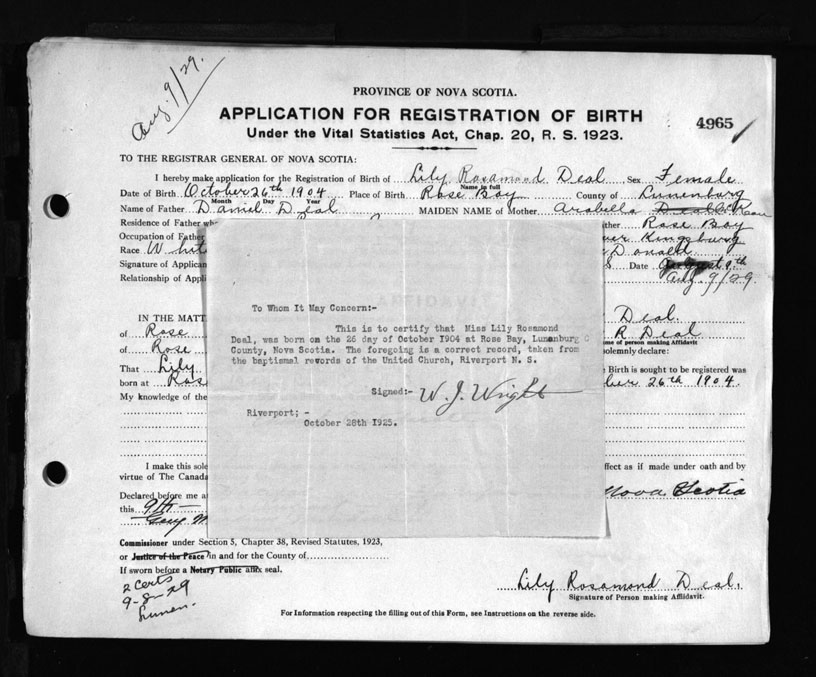 Aug. 9/29.
PROVINCE OF NOVA SCOTIA.
APPLICATION FOR REGISTRATION OF BIRTH
Under the Vital Statistics Act, Chap. 20, R. S. 1923.
4965
TO THE REGISTRAR GENERAL OF NOVA SCOTIA:
I hereby make application for the Registration of Birth of Lily Rosamond Deal Sex Female
Name in full
Date of Birth October 26th 1904 Place of Birth Rose Bay County of Lunenburg
Month Day Year
Name of Father Daniel Deal MAIDEN NAME of Mother Arabella
Residence of Father wh ther Rose Bay
Occupation of Father Kingsburg
Race Whit Donald
Signature of Applican S Date August 9th
Relationship of Appli Aug. 9/29
To Whom It May Concern:-
This is to certify that Miss Lily Rosamond
Deal, was born on the 26 day of October 1904 at Rose Bay, Lunanburg C
County, Nova Scotia. The foregoing is a correct record, taken from
the baptismal revords of the United Church, Riverport N. S.
Signed:- W. J. Wright
Riverport; -
October 28th 1925.
IN THE MATT Deal.
of Rose R Deal
me of person making Affidavit
of Rose solemnly declare:
That Lily e Birth is sought to be registered was
born at Ros ber 26th 1904.
My knowledge of the
I make this sole ffect as if made under oath and by
virtue of The Canada
Declared before me a Nova Scotia
this 9th
Geo M
Commissioner under Section 5, Chapter 38, Revised Statutes, 1923,
or Justice of the Peace in and for the County of
If sworn before a Notary Public affix seal.
2 Certs
9-8-29
Lunen.
Lily Rosamond Deal.
Signature of Person making Affidavit.
For Information respecting the filling out of this Form, see Instructions on the reverse side.